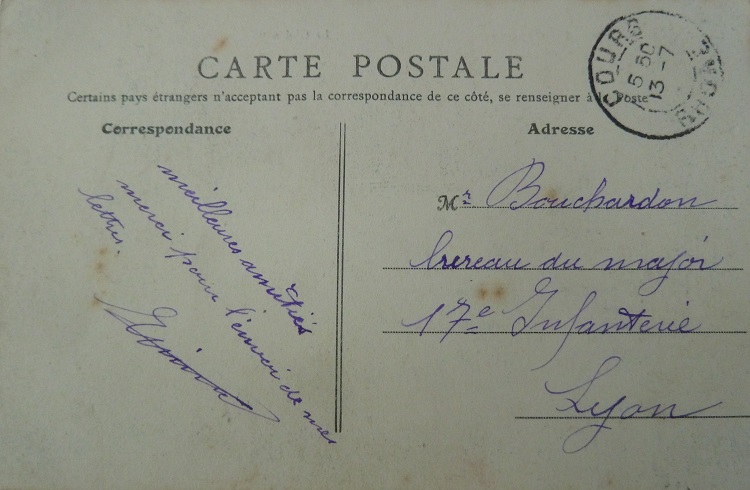 CARTE POSTALE
Certains pays étrangers n'acceptant pas la correspondance de ce côté, se renseigner à la Poste
Correspondance
meilleures amitiés
merci pour l'envoi de mes
lettres.
Adresse
Mr Bouchardon
bureau du major
17e Infanterie
Lyon
COURS
5 50
13 - 7
RHONE